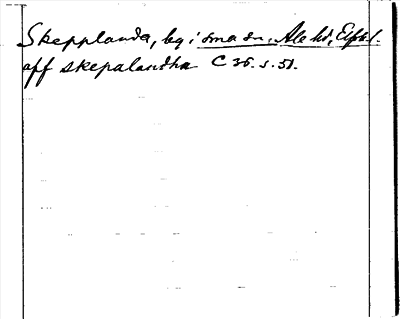 Skepplanda, by i sma sn, Ale hd, Elfsb. l.
aff skepalandha C 35. s. 51.